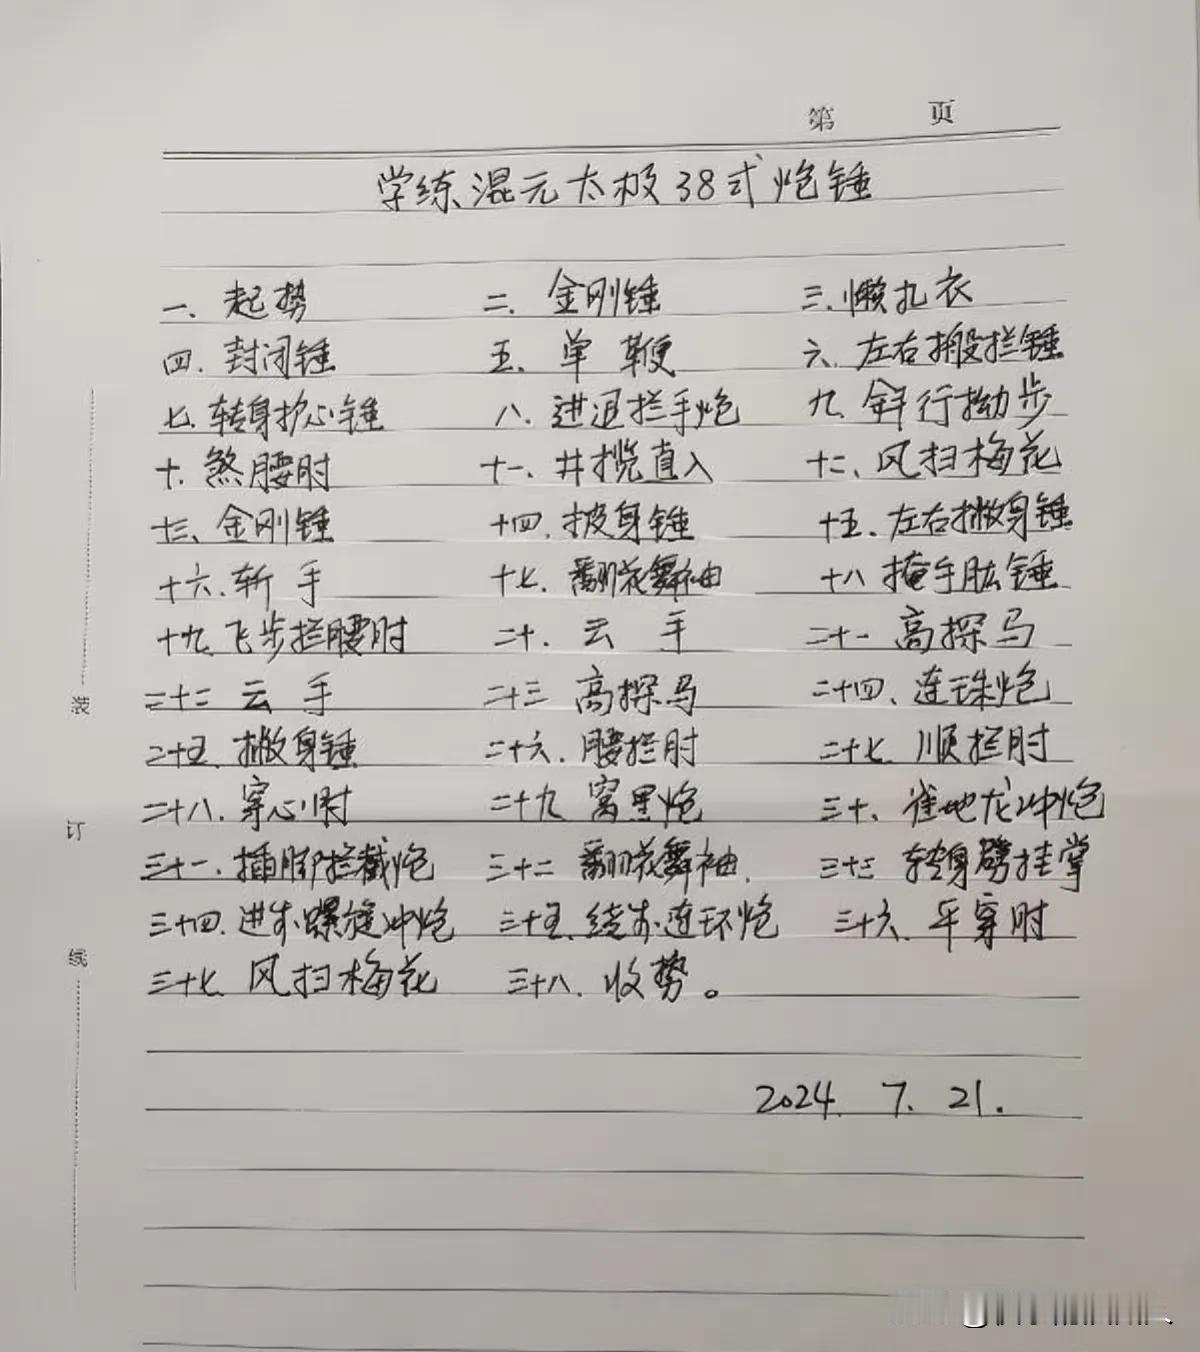 第 页
学练混元太极38式炮锤
一.起势 二.金刚锤 三.懒扎衣
四.封闭锤 五.单鞭 六.左右搬拦锤
七.转身护心锤 八.进退拦手炮 九.斜行拗步
十.煞腰肘 十一.井揽直入 十二、风扫梅花
十三、金刚锤 十四.披身锤 十五.左右撇身锤
十六.斩手 十七.翻花舞袖 十八 掩手肱锤
十九.飞步拦腰肘 二十.云手 二十一高探马
二十二 云手 二十三 高探马 二十四.连珠炮
二十五.撇身锤 二十六.腰拦肘 二十七.顺拦肘
二十八.穿心肘 二十九 窝里炮 三十、雀地龙冲炮
三十一.插脚拦截炮 三十二 翻花舞袖. 三十三 转身劈挂掌
三十四.进步螺旋冲炮 三十五.绕步连环炮 三十六.平穿肘
三十七 风扫梅花 三十八.收势。
2024.7.21.
装
订
线